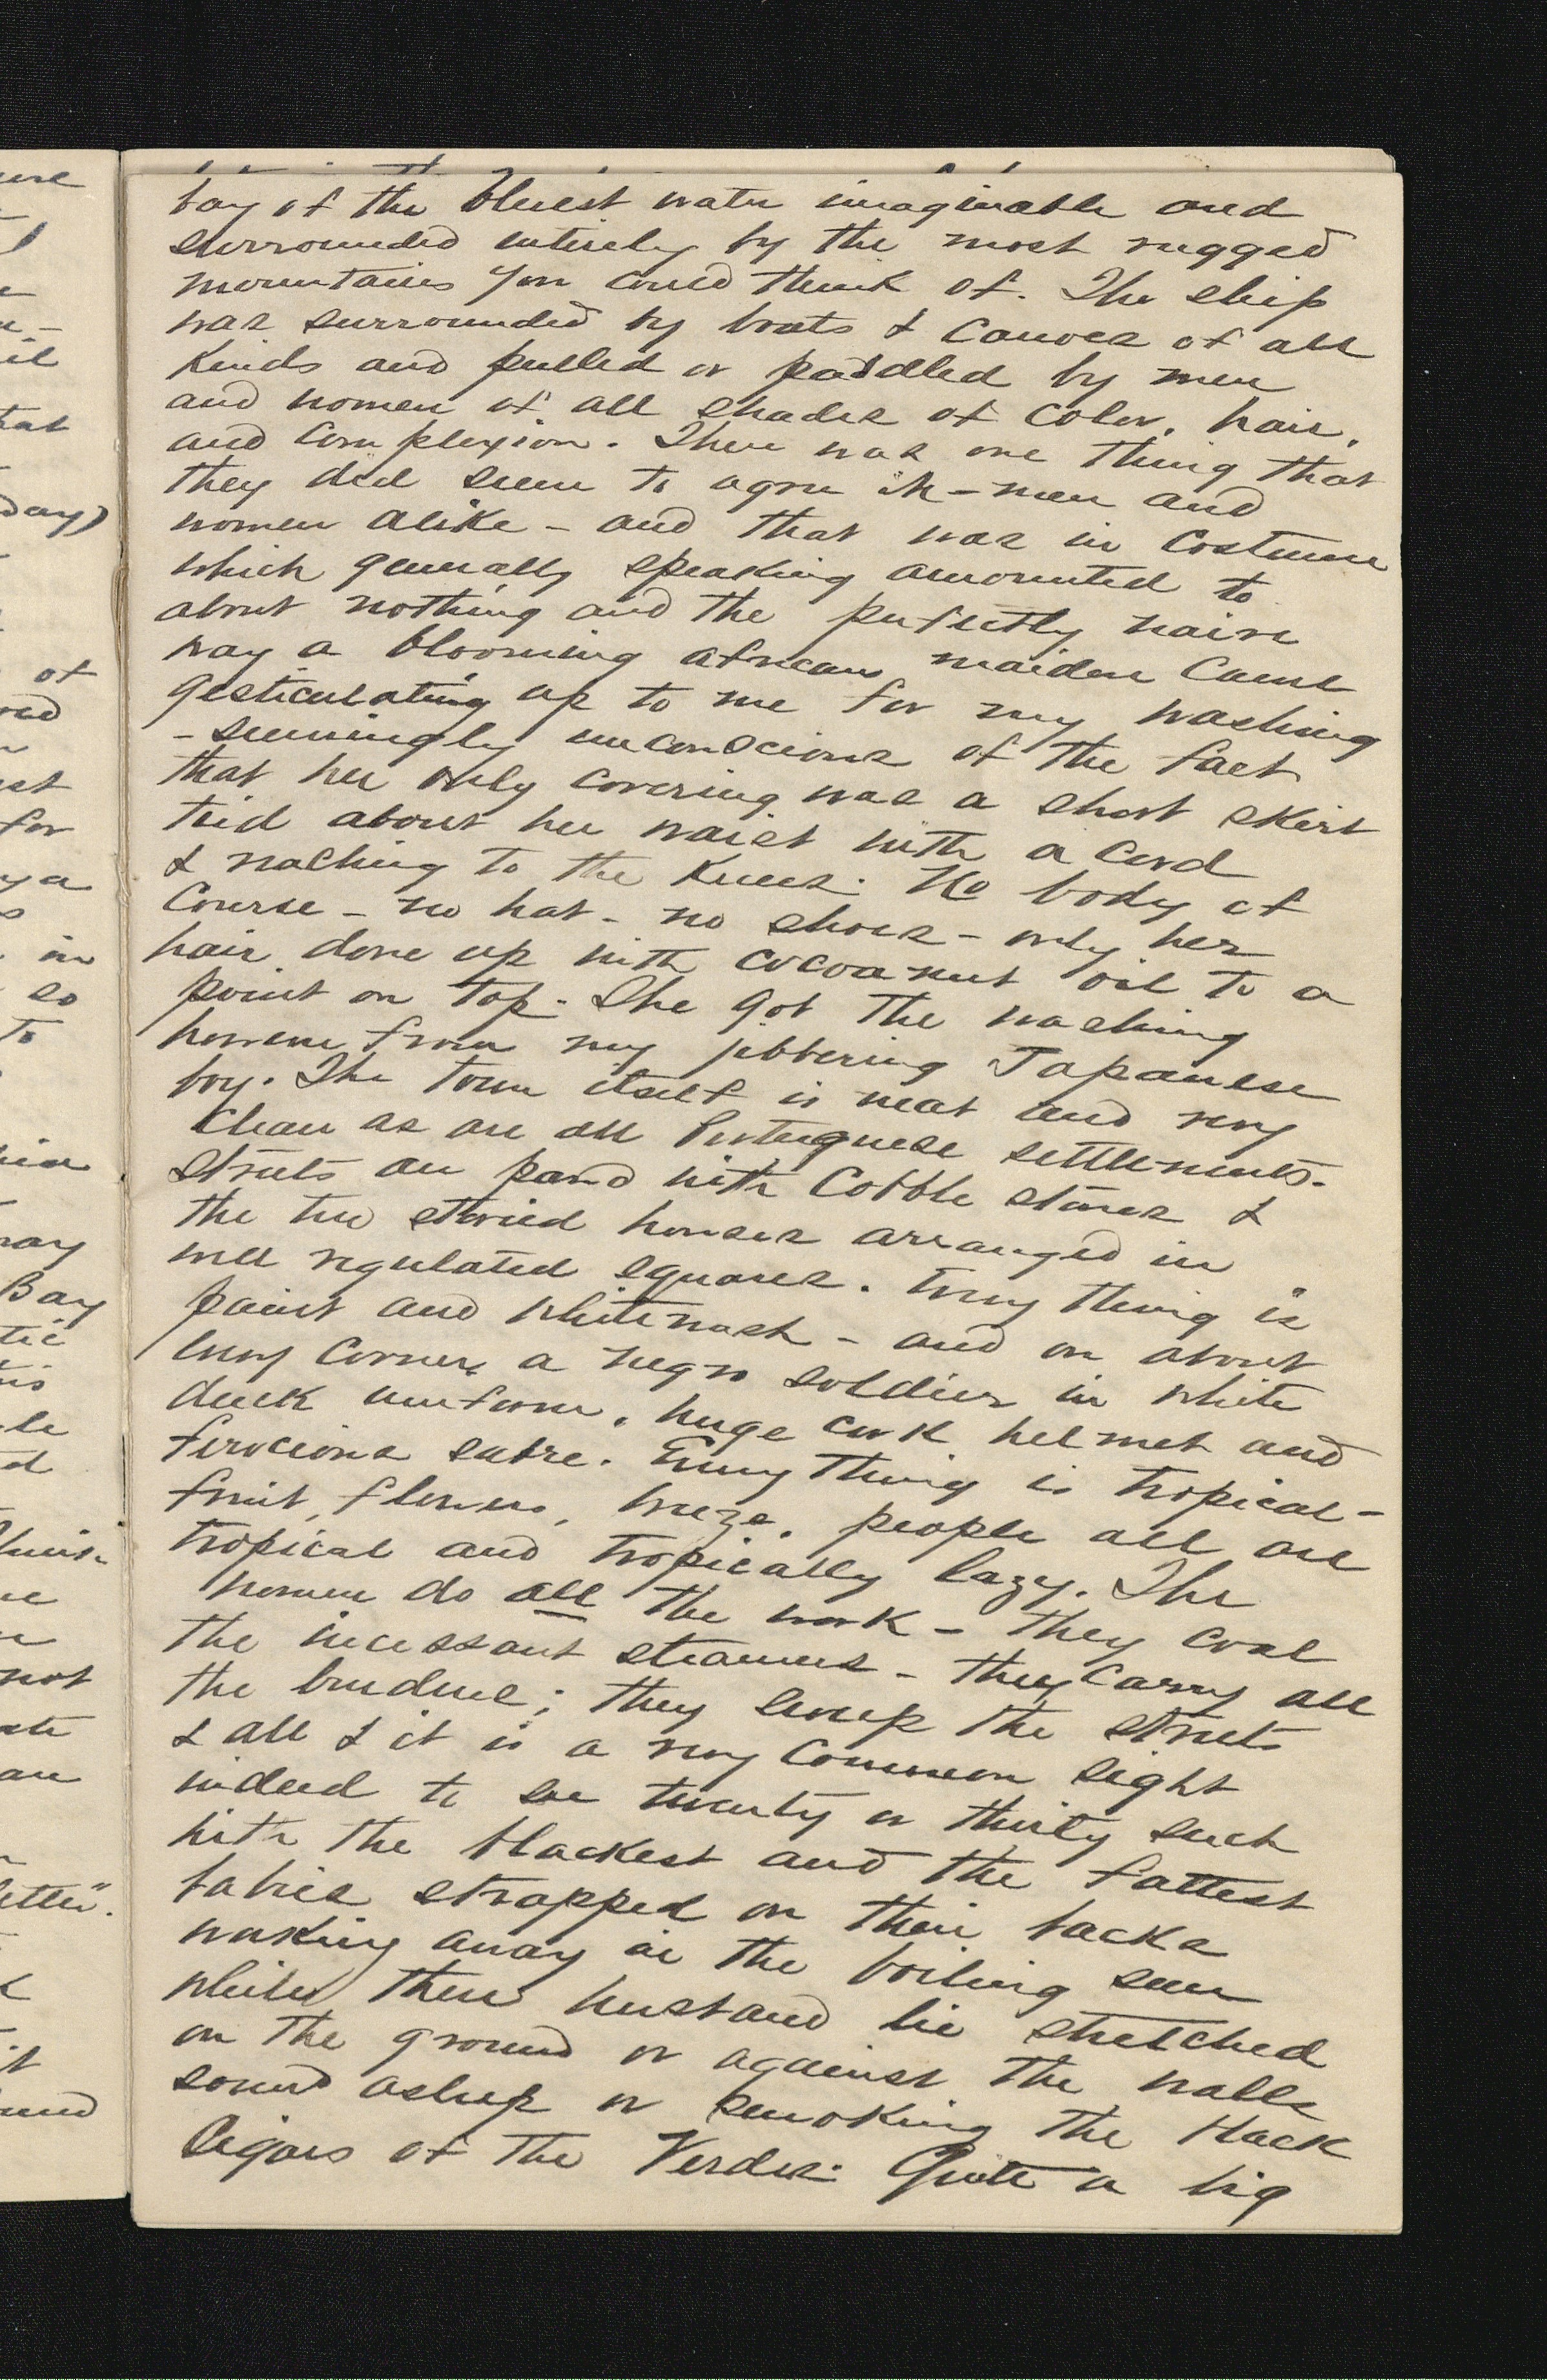 bay of the bluest water imaginable and
surrounded entirely by the most rugged
mountains you could think of. The ship
was surrounded by boats & canoes of all
kinds and pulled or paddled by men
and women of all shades of color, hair,
and complexion. There was one thing that
they did seem to agree in - men and
women alike - and that was in costume
which generally speaking amounted to
about nothing and the perfectly naive
way a blooming african maiden came
gesticulating up to me for my washing
- seemingly unconscious of the fact
that her only covering was a short skirt
tied about her waist with a cord
& reaching to the knees. No body of
course - no hat - no shoes - only her
hair done up with cocoanut oil to a
point on top. She got the washing
however from my jibbering Japanese
boy. The town itself is neat and very
clean as are all Portuguese settlements.
Streets are paved with cobble stones &
the two storied houses arranged in
well regulated squares. Every thing is
paint and whitewash - and on about
every corner a negro soldier in white
duck uniform, huge cork helmet and
ferocious sabre. Every thing is tropical -
fruit, flowers, breeze, people all are
tropical and tropically lazy. The
women do all the work - they coal
the incessant steamers - they carry all
the burdens; they sweep the streets
& all & it is a very common sight
indeed to see twenty or thirty such
with the blackest and the fattest
babies strapped on their backs
working away in the boiling sun
while their husband lie stretched
on the ground or against the walls
sound asleep or smoking the black
cigars of the Verdes. Quite a big
ure
il
hat
day)
of
est
for
ya
in
so
to
way
Bay
tic
not
letter".
it